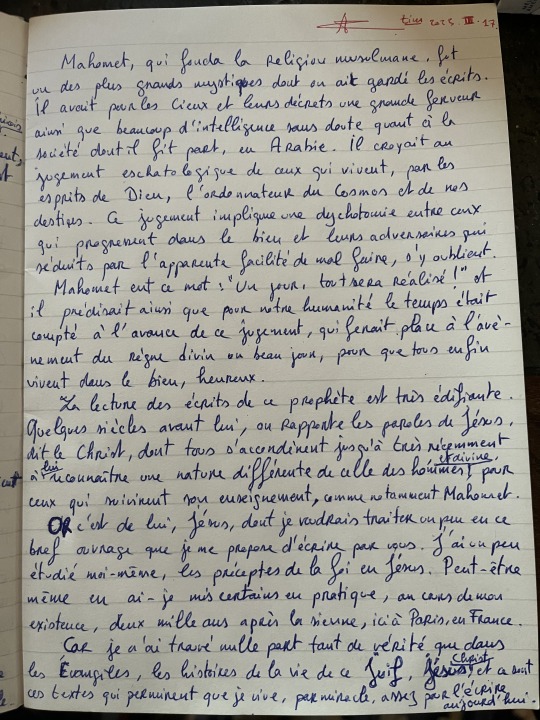 tim 2025 III 17.
Mahomet, qui fonda la religion musulmane, fut
un des plus grands mystiques dont on ait gardé les écrits.
Il avait pour les Cieux et leurs décrets une grande ferveur
ainsi que beaucoup d'intelligence sans doute quant à la
société dont il fit part, en Arabie. Il croyait au
jugement eschatologique de ceux qui vivent, par les
esprits de Dieu, l'ordonnateur du Cosmos et de nos
destins. Ce jugement implique une dychotomie entre ceux
qui progressent dans le bien et leurs adversaires qui
séduits par l'apparente facilité de mal faire, s'y oublient.
Mahomet eut ce mot : "Un jour, tout sera réalisé !" et
il prédisait ainsi que pour notre humanité le temps était
compté à l'avance de ce jugement, qui ferait place à l'avè-
nement du règne divin un beau jour, pour que tous enfin
vivent dans le bien, heureux.
La lecture des écrits de ce prophète est très édifiante.
Quelques siècles avant lui, on rapporte les paroles de Jésus,
dit le Christ, dont tous s'accordèrent jusqu'à très récemment
à lui reconnaître une nature différente de celle des hommes et divine, pour
ceux qui suivirent son enseignement, comme notamment Mahomet.
OR c'est de lui, Jésus, dont je voudrais traiter un peu en ce
bref ouvrage que je me propose d'écrire par vous. J'ai un peu
étudié moi-même, les préceptes de la foi en Jésus. Peut-être
même en ai-je mis certains en pratique, au cours de mon
existence, deux mille ans après la sienne, ici à Paris, en France.
Car je n'ai trouvé nulle part tant de vérité que dans
les Évangiles, les histoires de la vie de ce Juif, Jésus Christ, et ce sont
ces textes qui permirent que je vive, par miracle, assez pour l'écrire
aujourd'hui.